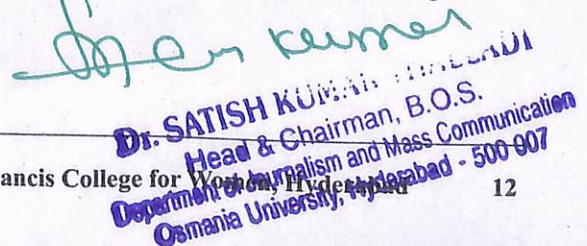 Kumar
Dr. SATISH KUMAR
Head & Chairman, B.O.S.
Department of Journalism and Mass Communication
Osmania University, Hyderabad - 500 007
ancis College for Women, Hyderabad 12